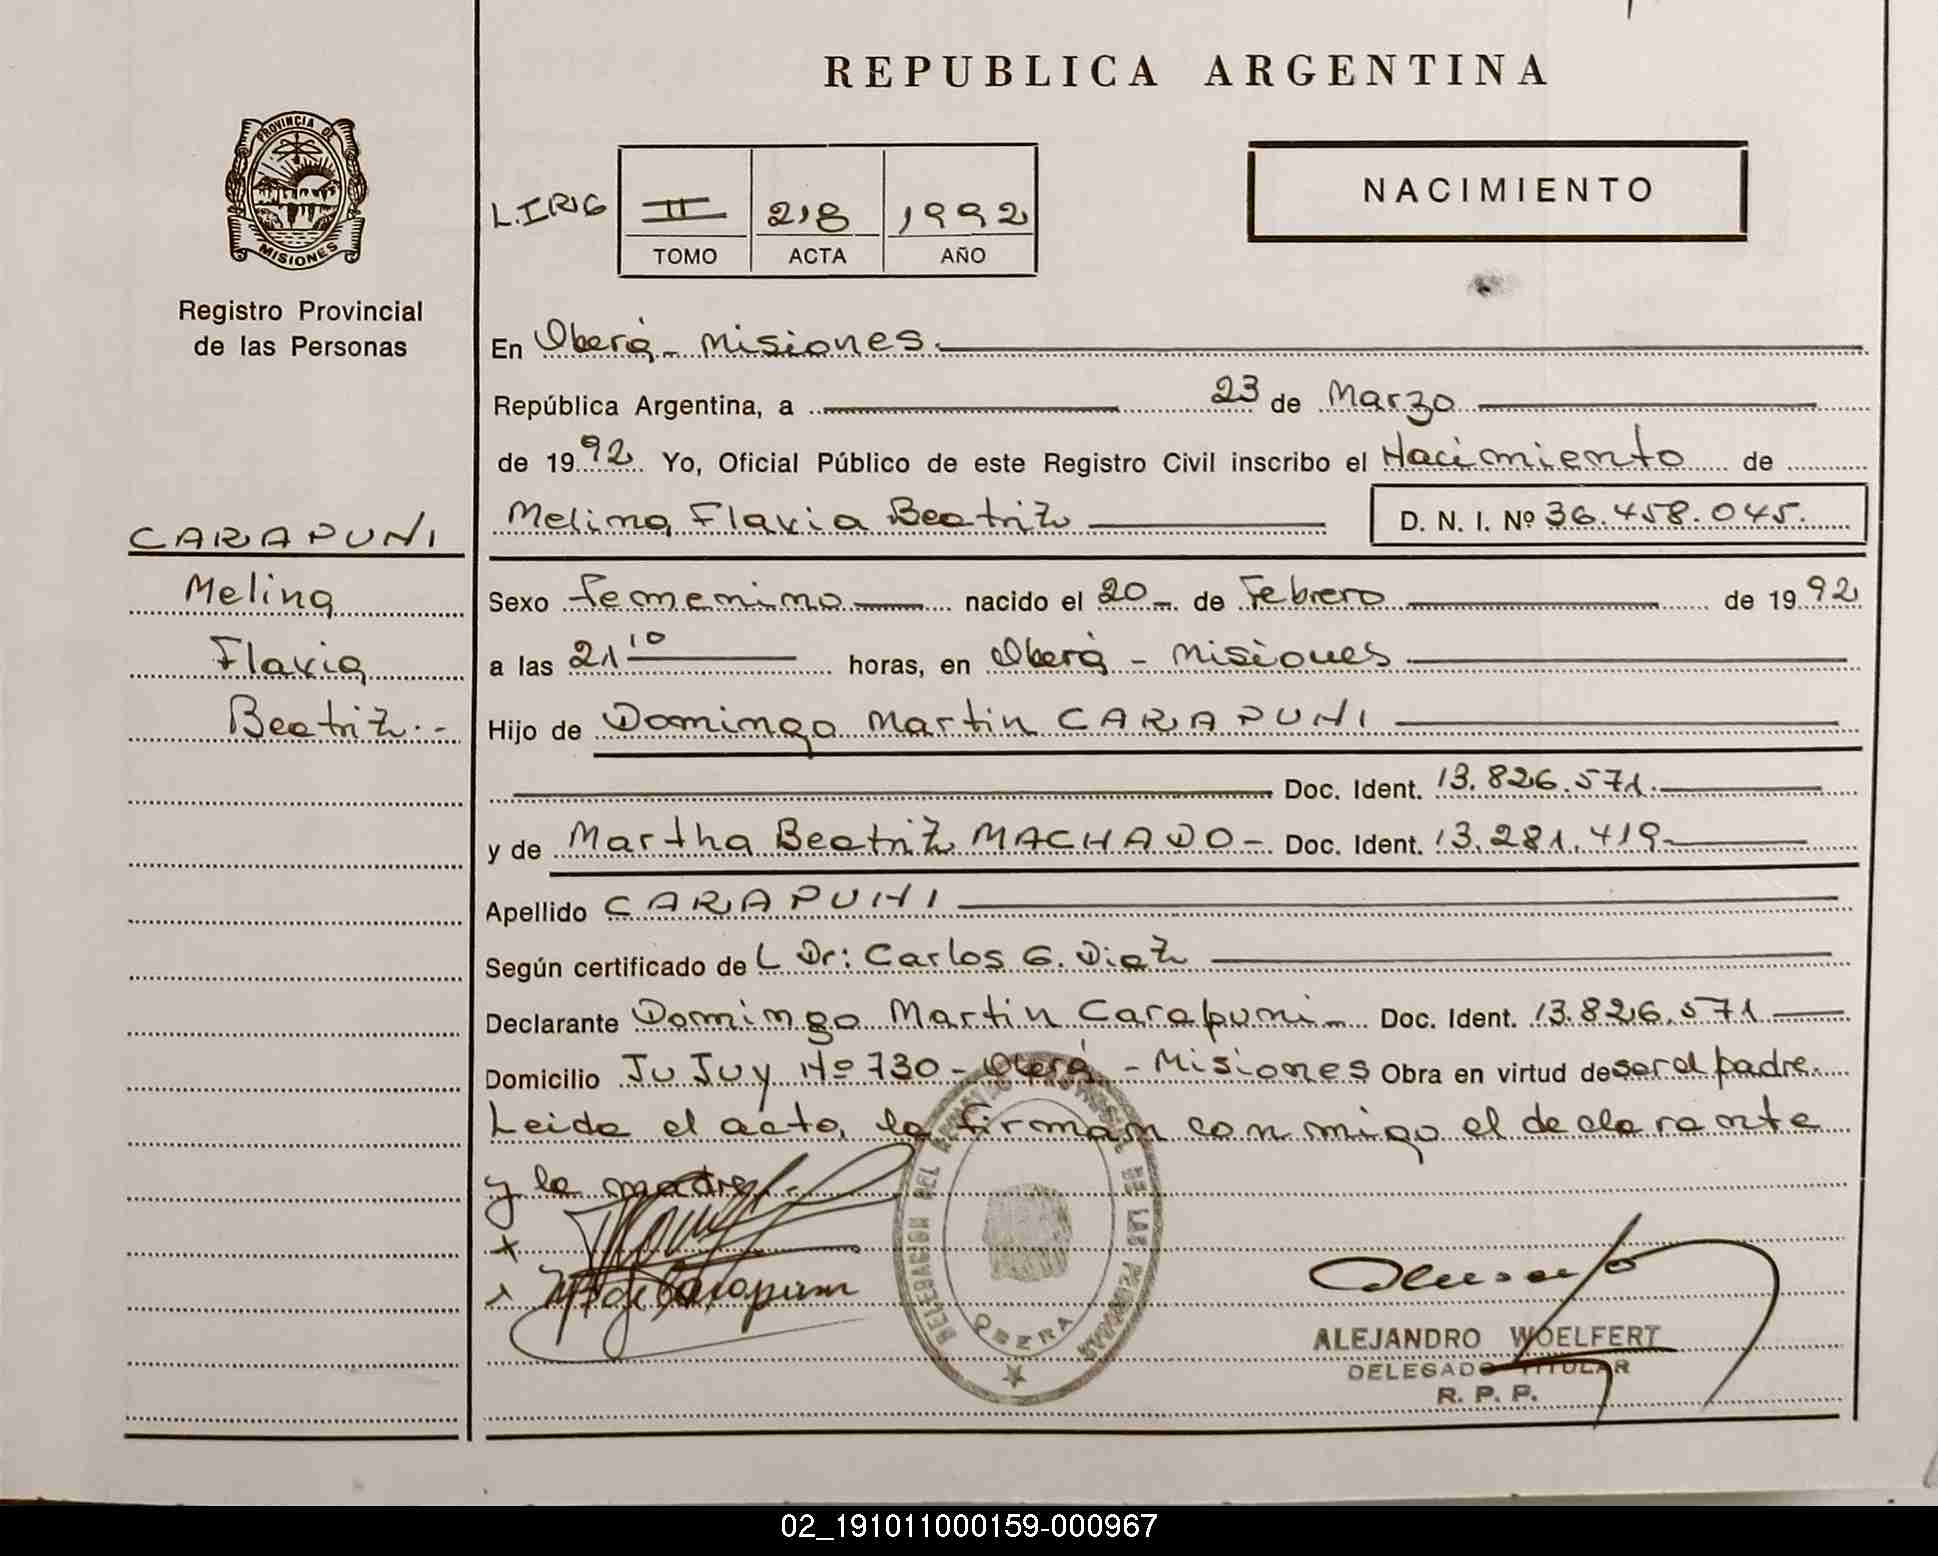 REPUBLICA ARGENTINA
PROVINCIA DE
MISIONES
Registro Provincial
de las Personas
L.IRIG
II 218 1992
TOMO ACTA AÑO
NACIMIENTO
En Oberá - Misiones.
República Argentina, a 23 de Marzo
de 1992 Yo, Oficial Público de este Registro Civil inscribo el Nacimiento de
Melina Flavia Beatriz D. N. I. Nº 36.458.045.
CARAPUNI
Melina
Flavia
Beatriz.-
Sexo femenino nacido el 20 de Febrero de 1992
a las 21 10 horas, en Oberá - Misiones
Hijo de Domingo Martin CARAPUNI
Doc. Ident. 13.826.571.
y de Martha Beatriz MACHADO - Doc. Ident. 13.281.419
Apellido CARAPUNI
Según certificado de L Dr: Carlos G. Diaz
Declarante Domingo Martin Carapuni - Doc. Ident. 13.826.571
Domicilio JuJuy Nº 730 - Oberá - Misiones Obra en virtud de ser el padre.
Leida el acta, la firman conmigo el declarante
y la madre.-
x
M de Carapuni
DELEGACION DEL REGISTRO PROVINCIAL DE LAS PERSONAS
OBERA
ALEJANDRO WOELFERT
DELEGADO TITULAR
R. P. P.
02_191011000159-000967